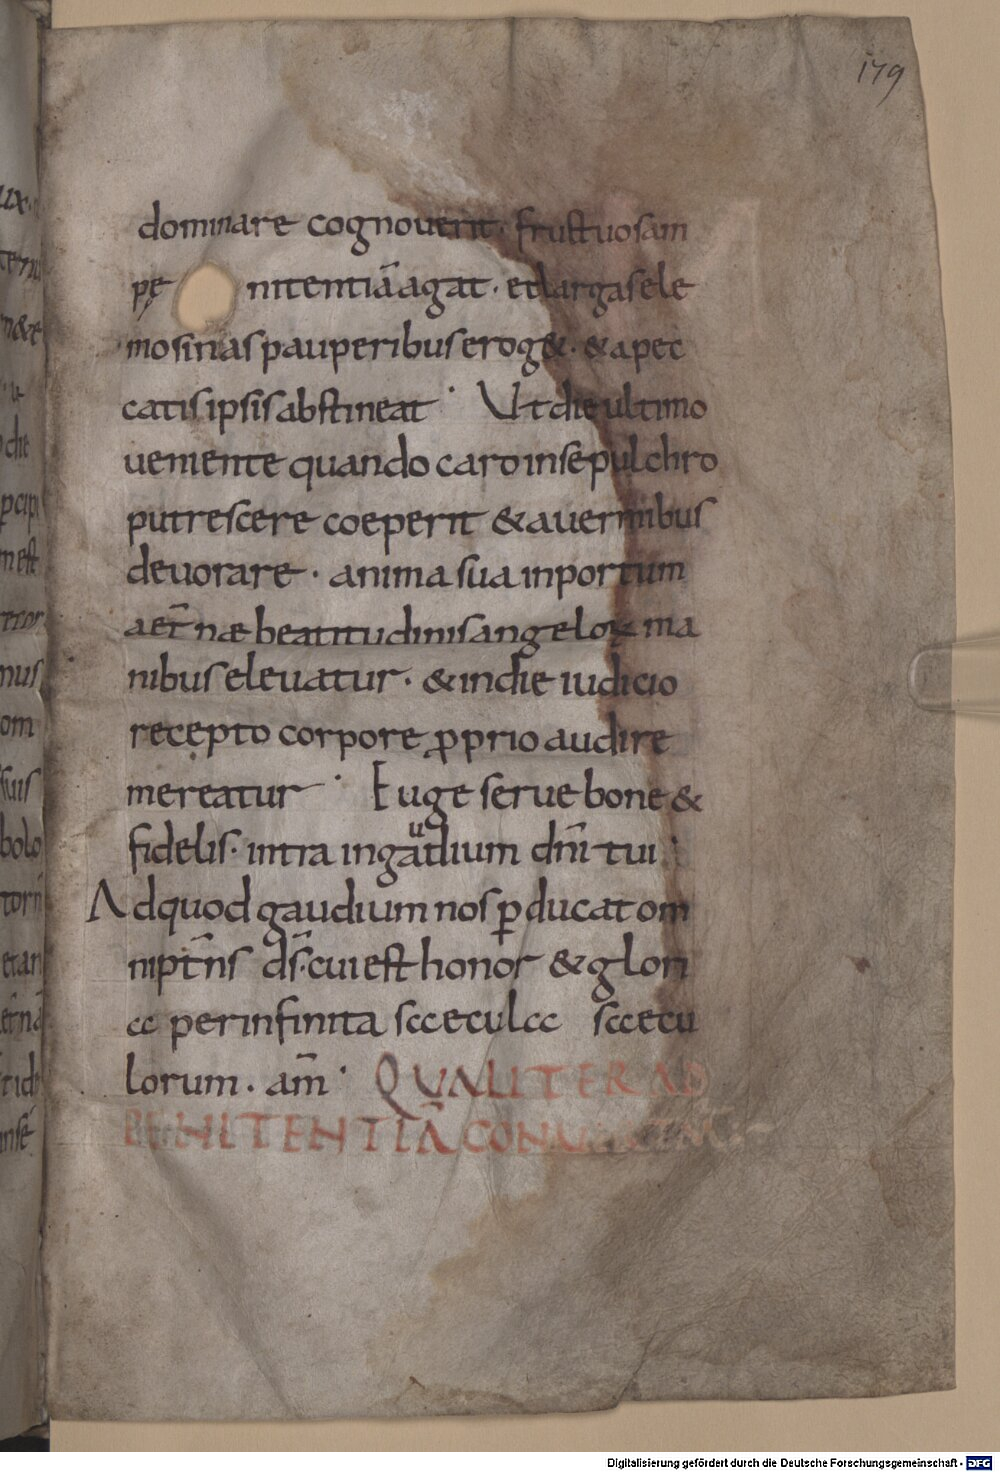 179
dominare cognouerit· fructuosam
pę nitentiā agat · et largas ele
mosinas pauperibus erog& · & a pec
catis ipsis abstineat · Ut die ultimo
ueniente quando caro in sepulchro
putrescere coeperit & a uermibus
deuorare · anima sua in portum
aet̄næ beatitudinis angeloꝝ ma
nibus eleuatur · & in die iudicio
recepto corpore ꝓprio audire
mereatur · Euge serue bone &
fidelis · intra in gaudium dn̄i tui ·
Ad quod gaudium nos ꝑducat om
nipt̄ns ds̄ · cui est honor & glori
a per infinita saecula saecu
lorum · am̄ · QUALITER AD
PENITENTIĀ
Digitalisierung gefördert durch die Deutsche Forschungsgemeinschaft - DFG